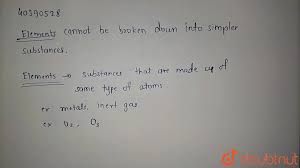 40390528
Elements cannot be broken down into simpler
substances.
Elements → substances that are made up of
same type of atoms.
ex metals, inert gas
ex O₂, O₃
doubtnut